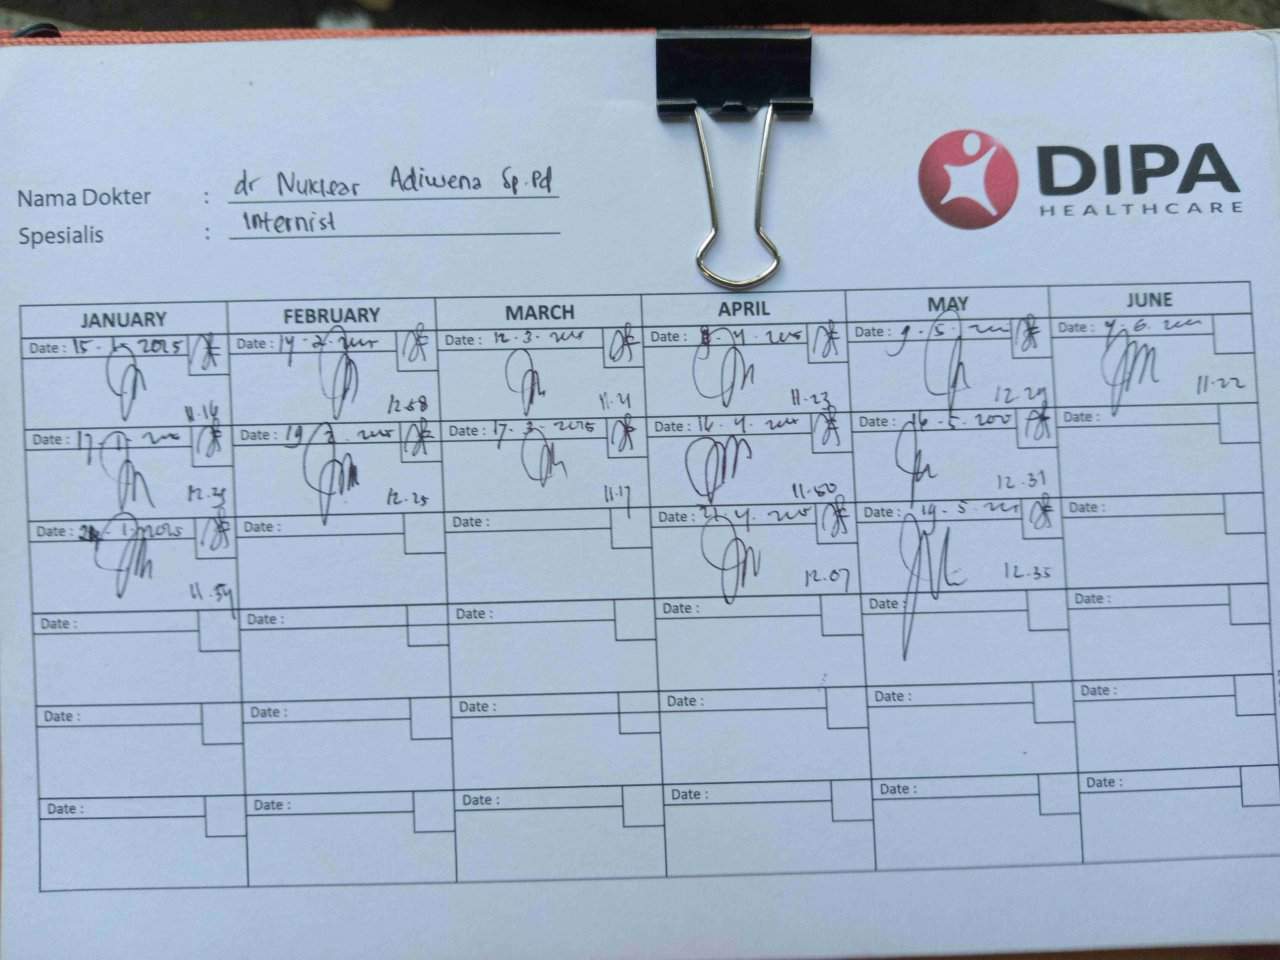 DIPA
HEALTHCARE
Nama Dokter : dr Nuklear Adiwena Sp.Pd
Spesialis : Internist
JANUARY FEBRUARY MARCH APRIL MAY JUNE
Date : 15 - 1 - 2025 Date : 14 - 2 - Date : 12 . 3 . Date : . 4 . Date : 9 . 5 . Date : . 6 .
11.16 12.58 11.21 11.23 12.29 11.22
Date : 17 - 1 - Date : 19 - 2 - Date : 17 - 3 - 2025 Date : 16 - 4 - Date : 16 - 5 - Date :
12.25 12.25 11.17 11.50 12.31
Date : - 1 - 2025 Date : Date : Date : - 4 - Date : 19 - 5 - Date :
11.54 12.07 12.35
Date : Date : Date : Date : Date : Date :
Date : Date : Date : Date : Date : Date :
Date : Date : Date : Date : Date : Date :